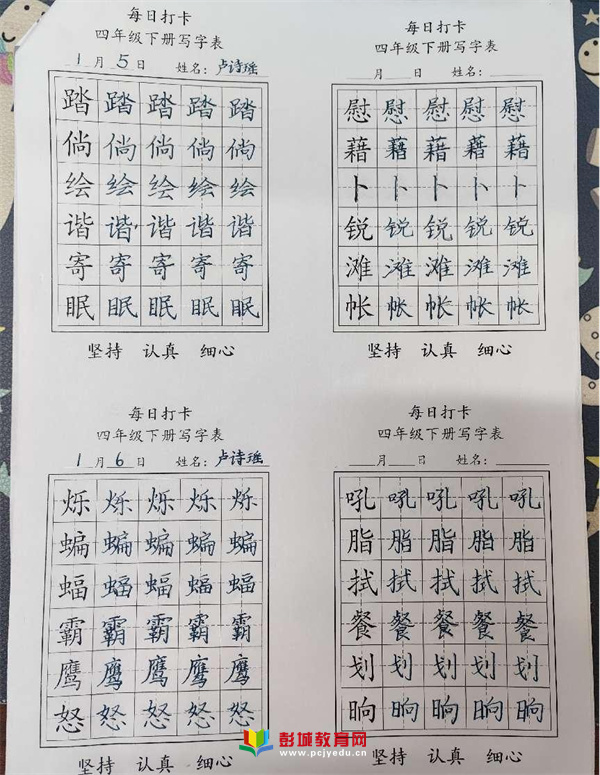 每日打卡
四年级下册写字表
1月5日 姓名:卢诗瑶
踏踏踏踏踏
倘倘倘倘倘
绘绘绘绘绘
谐谐谐谐谐
寄寄寄寄寄
眠眠眠眠眠
坚持 认真 细心
每日打卡
四年级下册写字表
月 日 姓名:
慰慰慰慰慰
藉藉藉藉藉
卜卜卜卜卜
锐锐锐锐锐
滩滩滩滩滩
帐帐帐帐帐
坚持 认真 细心
每日打卡
四年级下册写字表
1月6日 姓名:卢诗瑶
烁烁烁烁烁
蝙蝙蝙蝙蝙
蝠蝠蝠蝠蝠
霸霸霸霸霸
鹰鹰鹰鹰鹰
怒怒怒怒怒
坚持 认真 细心
每日打卡
四年级下册写字表
月 日 姓名:
吼吼吼吼吼
脂脂脂脂脂
拭拭拭拭拭
餐餐餐餐餐
划划划划划
晌晌晌晌晌
坚持 认真 细心
彭城教育网
www.pcjyedu.cn